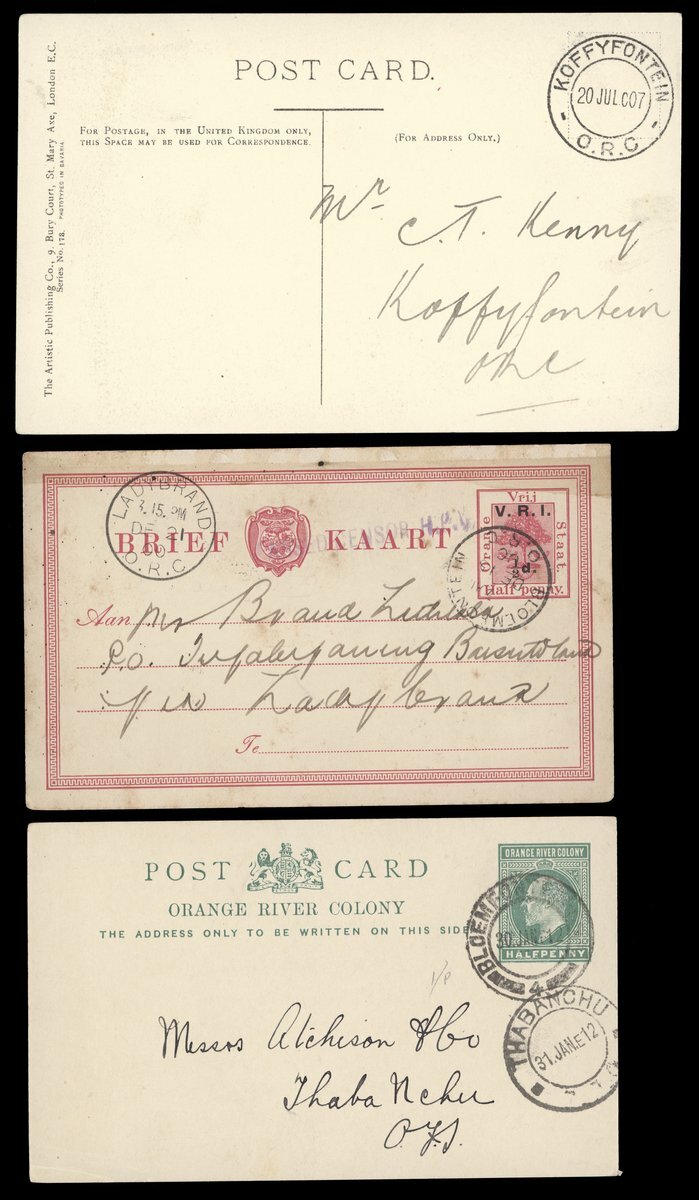 POST CARD.
KOFFYFONTEIN
20 JUL C07
O.R.C
FOR POSTAGE, IN THE UNITED KINGDOM ONLY,
THIS SPACE MAY BE USED FOR CORRESPONDENCE.
(FOR ADDRESS ONLY.)
The Artistic Publishing Co., 9, Bury Court, St. Mary Axe, London E.C.
Series No. 178. PHOTOTYPED IN BAVARIA
Mr
C. T. Kenny
Koffyfontein
ORC
LADYBRAND
3.15. PM
DE 21
00
O.R.C
BRIEF KAART
CENSOR H.P.Y.
Vrij
V.R.I.
Oranje
Staat
½d.
Half penny.
BLOEMFONTEIN
Aan Mr Brand
P.O.
Ladybrand
Te
POST CARD
ORANGE RIVER COLONY
THE ADDRESS ONLY TO BE WRITTEN ON THIS SIDE
ORANGE RIVER COLONY
HALFPENNY
4
1/P
THABANCHU
31.JAN.E12
Messrs Atchison & Co
Thaba Nchu
O.F.S.